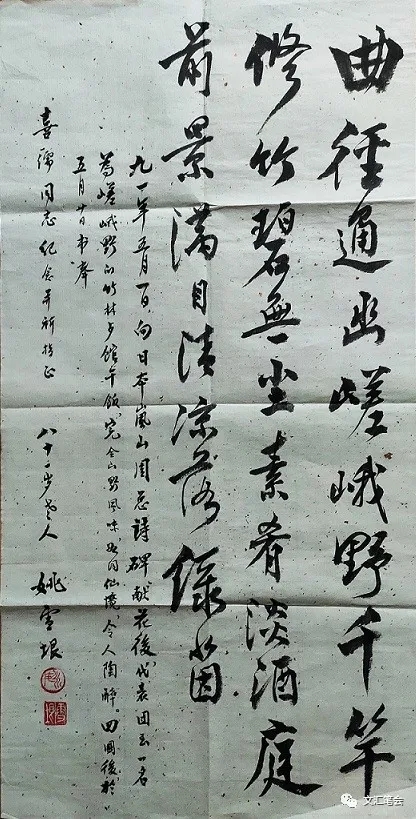 曲徑通幽嵯峨野千竿
修竹碧無尘素肴淡酒庭
前景满目清凉落绿茵
九一年五月一日，向日本嵐山周总詩碑献花後，代表团至一名
為嵯峨野的竹林乡馆午饭，完全山野風味，如同仙境，令人陶醉。回國後於
五月廿日书奉
喜儒同志纪念并祈指正
八十二岁老人 姚雪垠
文汇笔会